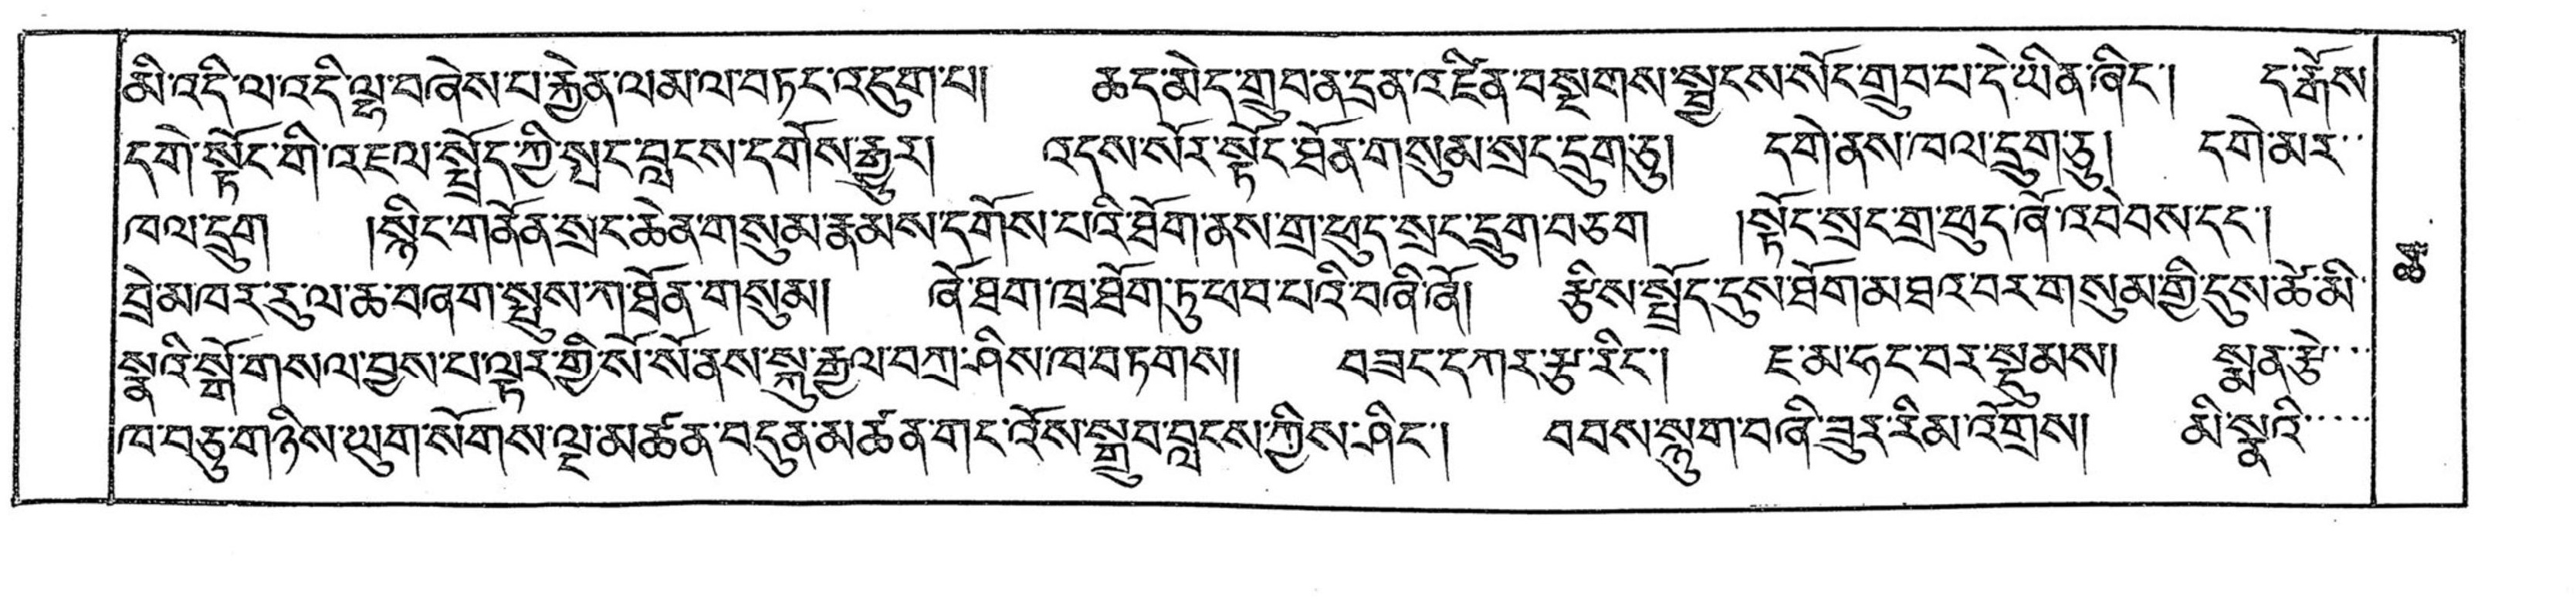 མི་འདི་ལ་འདི་ལྟ་བཞེས་པ་རྐྱེན་ལམ་ལ་བཏང་འདུག་པ།   ཆད་མེད་གྲུབ་ན་དྲན་འཛིན་བསྔགས་སྦྱངས་སོང་གྲུབ་པ་དེ་ཡིན་ཞིང་།   ད་རྙོས
དགེ་སྟོང་གི་འཇལ་སྤྲོད་ཀྱི་སྤང་བླངས་དགོས་རྒྱུར།   འདས་སོར་སྟོང་ཐོན་གསུམ་སྲང་དྲུག་ཅུ།   དགེ་ནས་ཁལ་དྲུག་ཅུ།   དགེ་མར
ཁལ་དྲུག   །སྙིང་གནོན་སྲང་ཆེན་གསུམ་རྣམས་དགོས་པའི་ཐོག་ནས་གྲ་ཕུད་སྲང་དྲུག་བཅག   །སྟོང་སྲང་གྲ་ཕུད་ཞོ་འབེབས་དང་།
བྲེ་མ་ཁར་རུ་ལ་ཆ་བཞག་སྤུས་ཀ་ཐོན་གསུམ།   ཞེ་ཐག་ཁྲ་ཐོག་ཏུ་ཕབ་པའི་བཞི་ཞོ།   རྩིས་སྤྲོད་དུས་ཐོག་མ་ཐའ་བར་གསུམ་གྱི་དུས་ཚེ་མི་
སྣའི་སྒོ་གསལ་བྱས་པ་ལྟར་གྱི་སོ་སོ་ནས་སྐུ་རྒྱལ་བཀྲ་ཤིས་ཁ་བཏགས།   བཟང་དཀར་རྩ་རིང་།   ཇ་མ་ཧང་བར་སྡོམས།   སྨན་རྩེ
ཁ་བཅུ་གཉིས་ཡུག་སོགས་ལྔ་མཚན་བདུན་མཚན་གང་འོས་སྒྲུབ་བླངས་ཀྱིས་ཤིང་།   བབས་སྟུག་བཞི་ཟུར་རིམ་འགྲོས།   མི་སྣའི